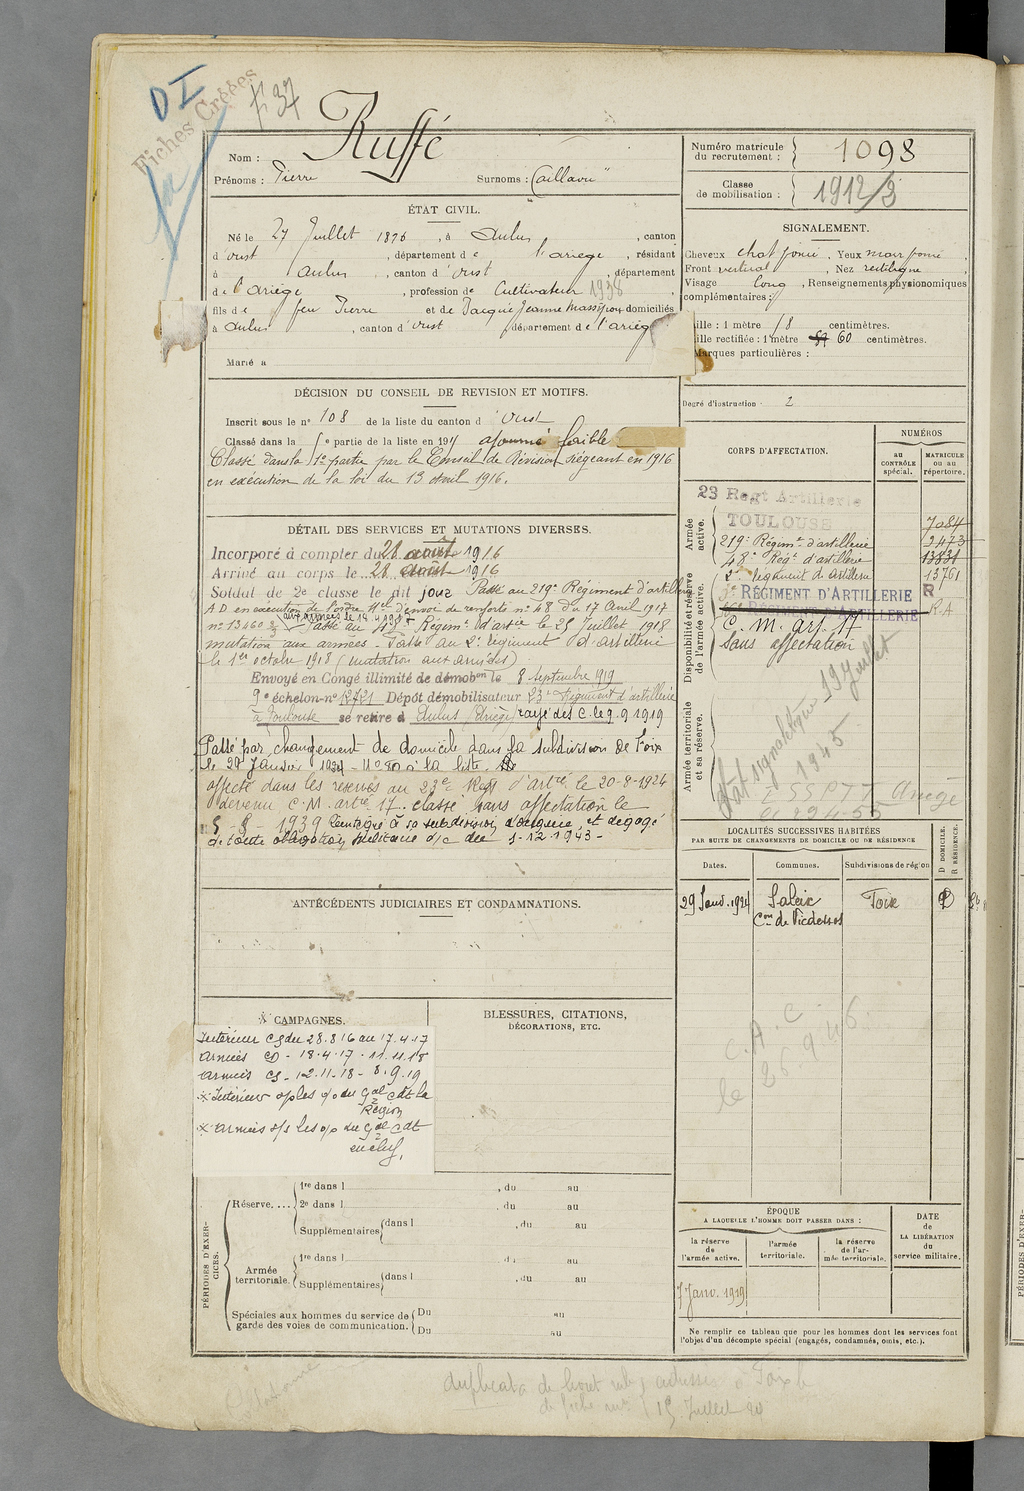 D I
Fiches Créées
f 37
Nom : Ruffé
Prénoms : Pierre Surnoms : "Caillavu"
Numéro matricule du recrutement : 1098
Classe de mobilisation : 1912/3
ÉTAT CIVIL.
Né le 27 Juillet 1896, à Aulus, canton
d'Oust, département de l'Ariège, résidant
à Aulus, canton d'Oust, département
de l'Ariège, profession de Cultivateur 1938
fils de feu Pierre et de Jeanne domiciliés
à Aulus, canton d'Oust département de l'Ariège
Marié à
SIGNALEMENT.
Cheveux chat foncé, Yeux marr foncé,
Front vertical, Nez rectiligne,
Visage long, Renseignements physionomiques
complémentaires :
Taille : 1 mètre 58 centimètres.
Taille rectifiée : 1 mètre 60 centimètres.
Marques particulières :
Degré d'instruction 2
DÉCISION DU CONSEIL DE REVISION ET MOTIFS.
Inscrit sous le n° 108 de la liste du canton d'Oust
Classé dans la 5e partie de la liste en 191 ajourné faible
Classé dans la 1e partie par le Conseil de Révision siégeant en 1916
en exécution de la loi du 13 avril 1916.
DÉTAIL DES SERVICES ET MUTATIONS DIVERSES.
Incorporé à compter du 28 août 1916
Arrivé au corps le 28 août 1916
Soldat de 2e classe le dit jour Passé au 219e Régiment d'artillerie
A D en exécution de l'ordre Mel d'envoi de renforts n° 48 du 17 Avril 1917
n° 13460 Passé au 48e Régimt d'artie le 25 Juillet 1918
mutation aux armées. Passé au 2e régiment d'artillerie
le 1er octobre 1918 (mutation aux armées)
Envoyé en Congé illimité de démobon le 8 septembre 1919
9e échelon n° 12721 Dépôt démobilisateur 23e Régiment d'artillerie
à Toulouse se retire à Aulus (Ariège) rayé des C. le 9.9 1919
Passé par changement de domicile dans la subdivision de Foix
le 29 Janvier 1924 - N° 80 à la liste
affecté dans les réserves au 23e Regt d'artie le 20-8-1924
devenu C.M. artie 17. classé sans affectation le
5 - 8 - 1939 et dégagé
de toute obligation militaire d/c du 1-12 1943 -
CORPS D'AFFECTATION.
NUMÉROS
au CONTRÔLE spécial.
MATRICULE ou au répertoire.
Armée active.
23 Regt Artillerie
TOULOUSE 7084
219e Régimt d'artillerie 2473
48e Regt d'artillerie 13831
2e régiment d'artillerie 13761
Disponibilité et réserve de l'armée active.
RÉGIMENT D'ARTILLERIE R
RÉGIMENT D'ARTILLERIE R.A
C. M. art. 17
Sans affectation
Armée territoriale et sa réserve.
Etat signalétique 19 Juillet
1945
ESSPTT Ariège
ANTÉCÉDENTS JUDICIAIRES ET CONDAMNATIONS.
LOCALITÉS SUCCESSIVES HABITÉES
PAR SUITE DE CHANGEMENTS DE DOMICILE OU DE RÉSIDENCE
Dates. Communes. Subdivisions de région
D DOMICILE.
R RÉSIDENCE.
29 Janv. 1924 Saleix Foix D
Con de Vicdessos
C. A. C.
le 26.9.46.
CAMPAGNES.
Intérieur CS du 28.8 16 au 17.4.17
Armées CD - 18.4.17 - 11.11.18
Armées CS - 12.11.18 - 8.9.19
× Intérieur s/ples o/o du Gal Cdt la
2e Région
× Armées s/s les o/o du Gal Cdt
en chef,
BLESSURES, CITATIONS,
DÉCORATIONS, ETC.
PÉRIODES D'EXERCICES.
Réserve.... 1re dans l , du au
2e dans l , du au
Supplémentaires dans l , du au
Armée territoriale. 1re dans l , du au
Supplémentaires dans l , du au
Spéciales aux hommes du service de Du au
garde des voies de communication. Du au
ÉPOQUE
A LAQUELLE L'HOMME DOIT PASSER DANS :
la réserve de l'armée active.
l'armée territoriale.
la réserve de l'armée territoriale.
DATE de LA LIBÉRATION du service militaire.
7 Janv. 1919
Ne remplir ce tableau que pour les hommes dont les services font
l'objet d'un décompte spécial (engagés, condamnés, omis, etc.).
duplicata de livret adressé à Foix le
15 Juillet
PÉRIODES D'EXER